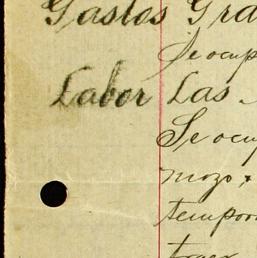 Gastos Gra
Se ocup
Labor Las
Se ocu
mozo
tempor